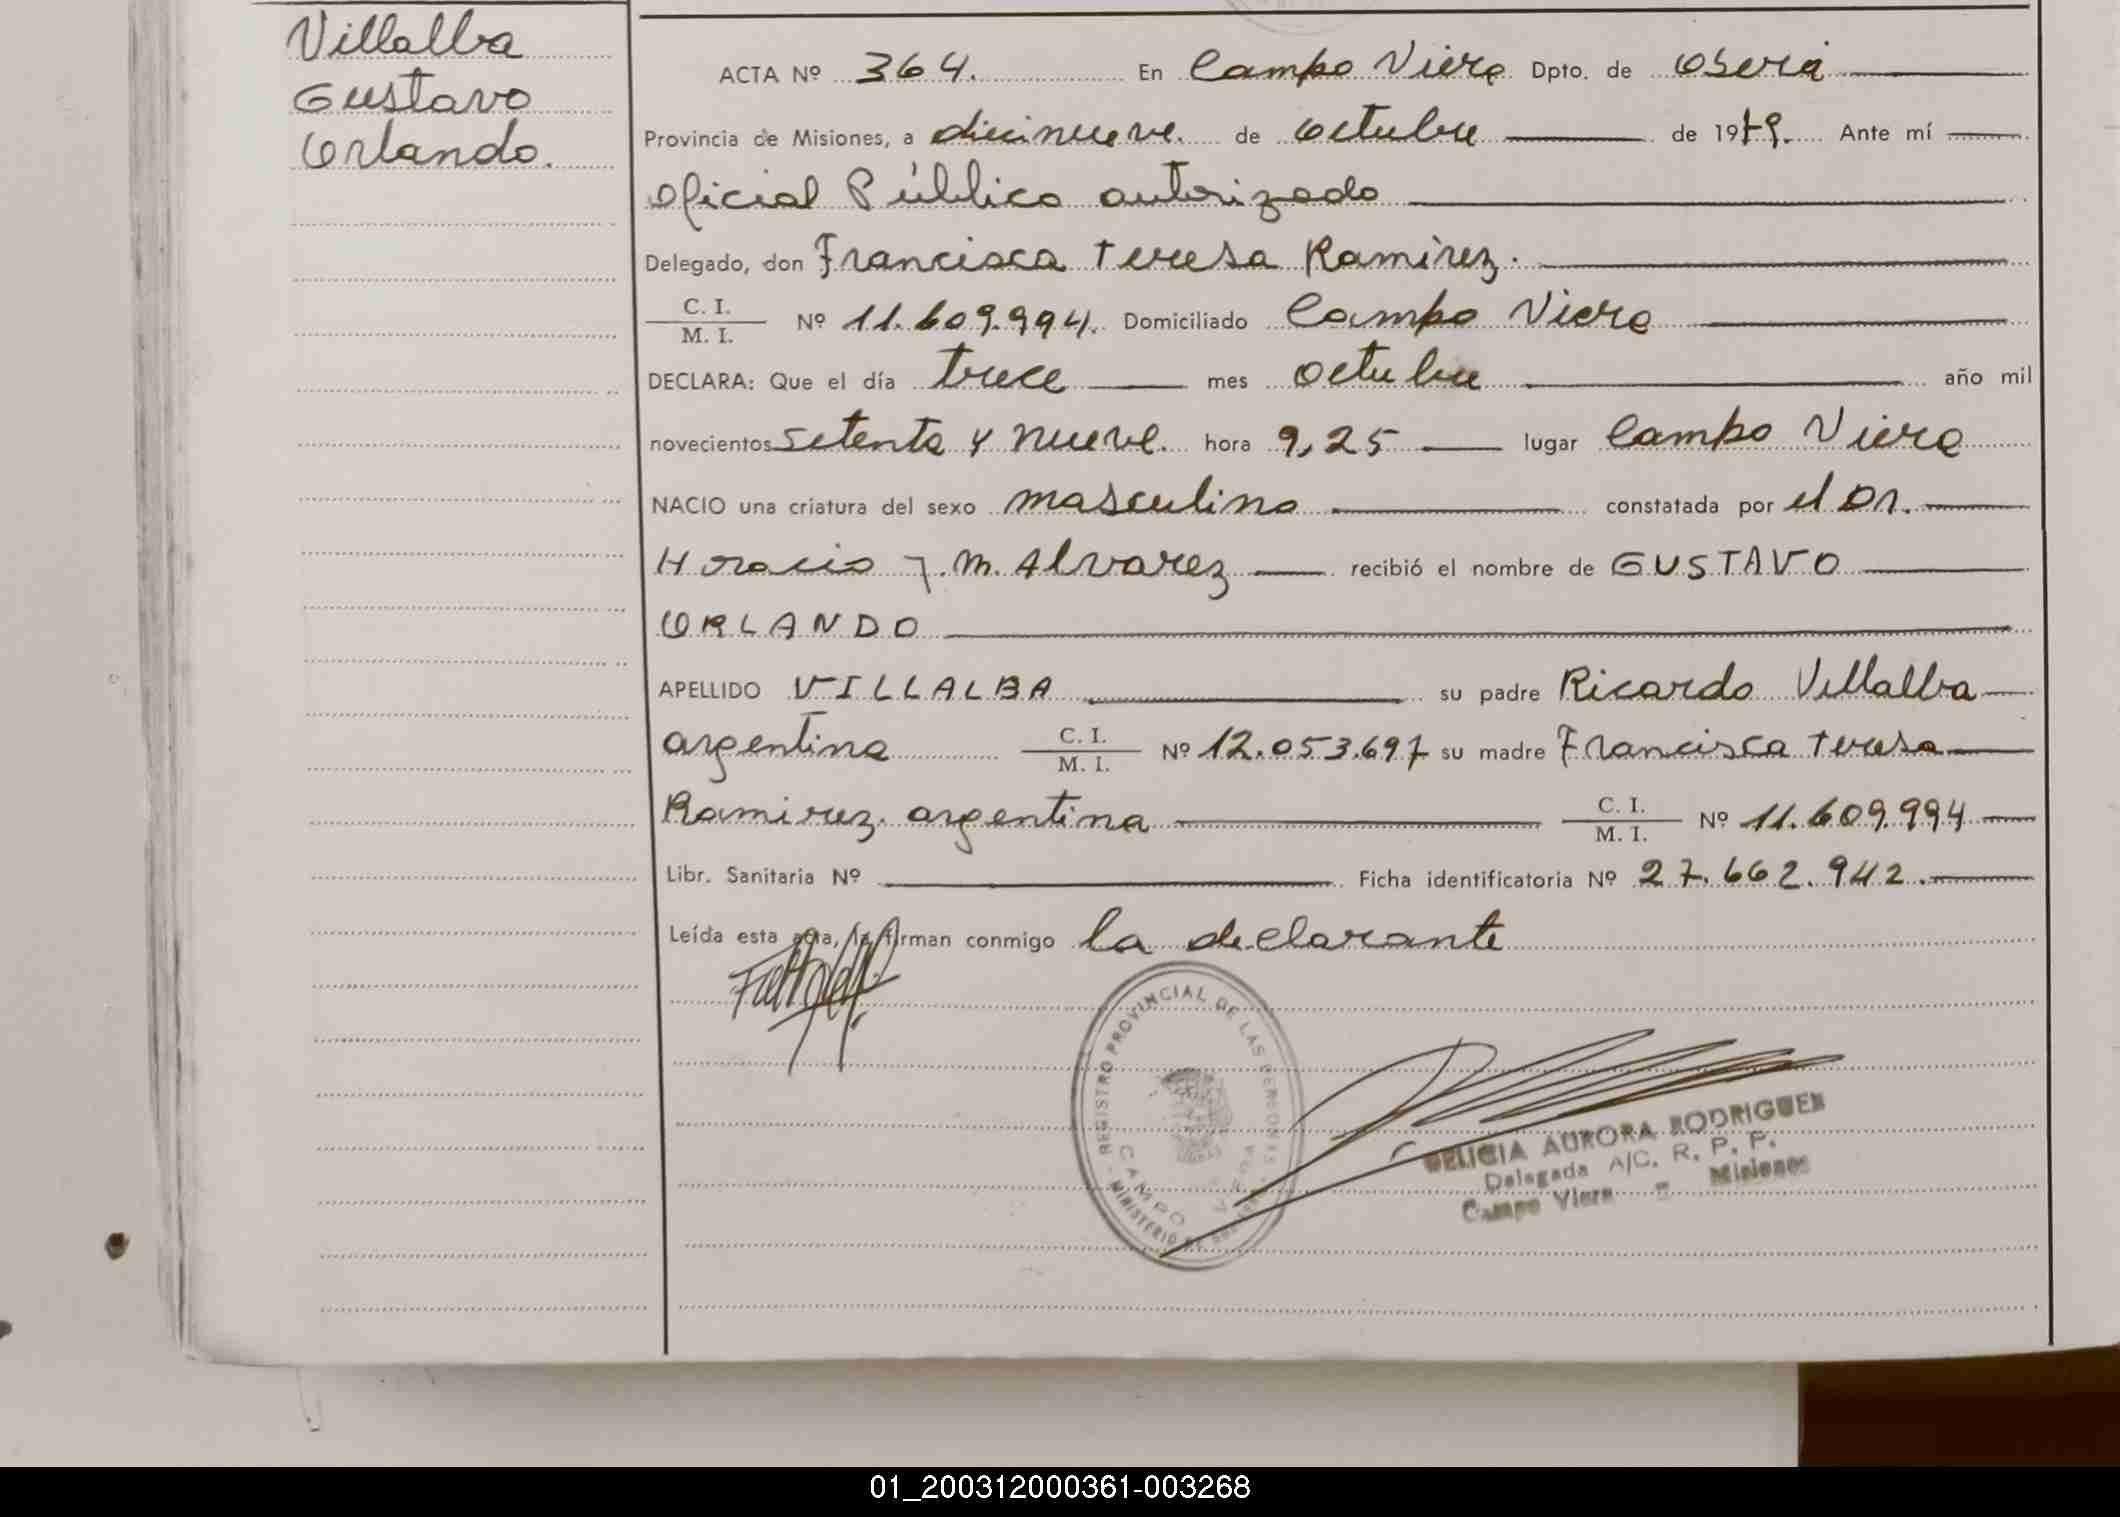 Villalba
Gustavo
Orlando.
ACTA Nº 364. En Campo Viera Dpto. de Oberá
Provincia de Misiones, a diecinueve. de octubre de 1979. Ante mí
oficial Público autorizado
Delegado, don Francisca Teresa Ramirez.
C. I.
M. I.
Nº 11.609.994. Domiciliado Campo Viera
DECLARA: Que el día trece mes octubre año mil
novecientos setenta y nueve. hora 9,25 lugar Campo Viera
NACIO una criatura del sexo masculino constatada por el Dr.
Horacio J. M. Alvarez recibió el nombre de GUSTAVO
ORLANDO
APELLIDO VILLALBA su padre Ricardo Villalba
argentina C. I.
M. I.
Nº 12.053.697 su madre Francisca Teresa
Ramirez. argentina C. I.
M. I.
Nº 11.609.994
Libr. Sanitaria Nº Ficha identificatoria Nº 27.662.942.
Leída esta acta, la firman conmigo la declarante
REGISTRO PROVINCIAL DE LAS PERSONAS
CAMPO VIERA
MINISTERIO DE
AURORA RODRIGUEZ
Delegada A/C. R. P. P.
Campo Viera - Misiones
01_200312000361-003268